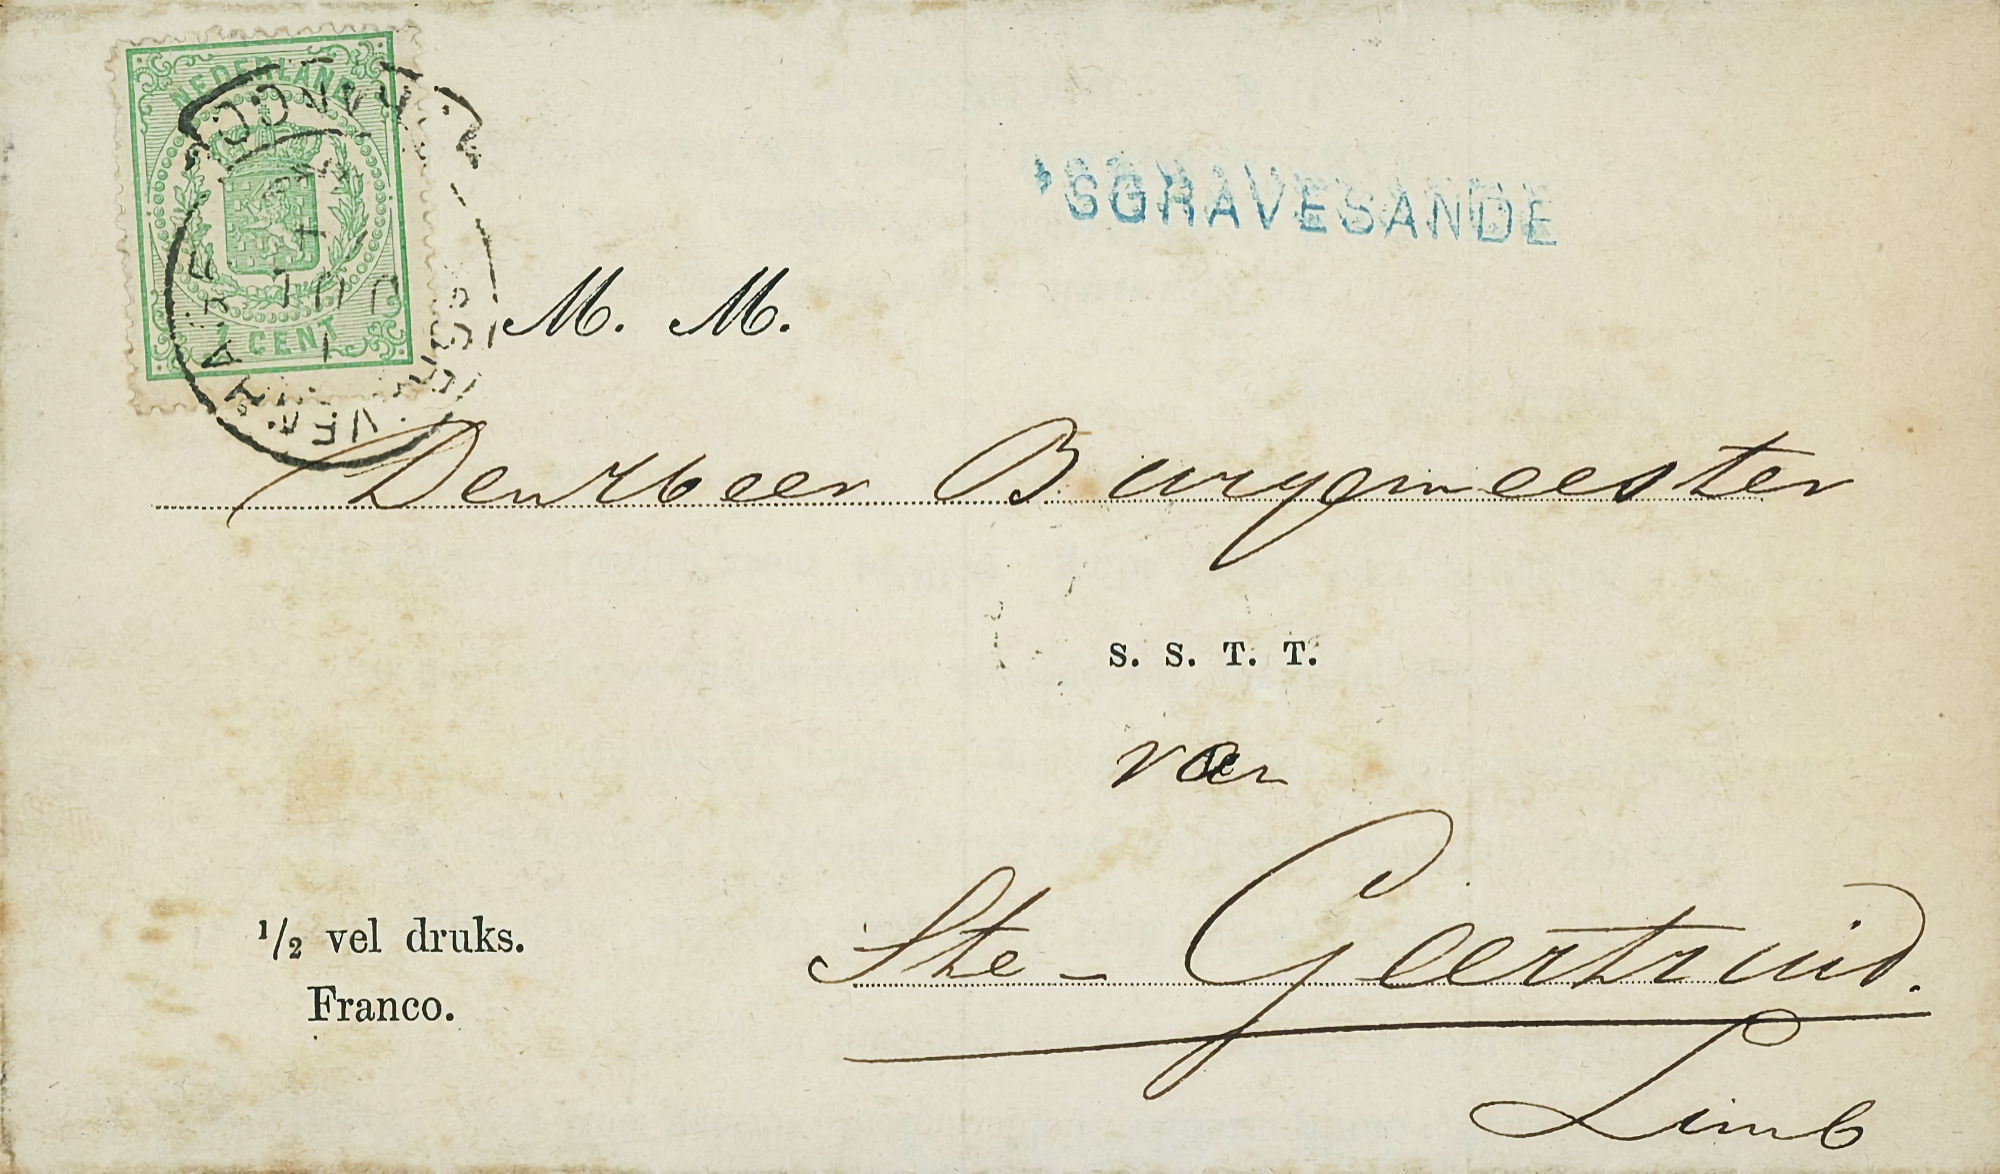 NEDERLAND
1 CENT
'SGRAVESANDE
M. M.
Burgemeester
S. S. T. T.
van
Ste - Geertruid.
Limb
1/2 vel druks.
Franco.